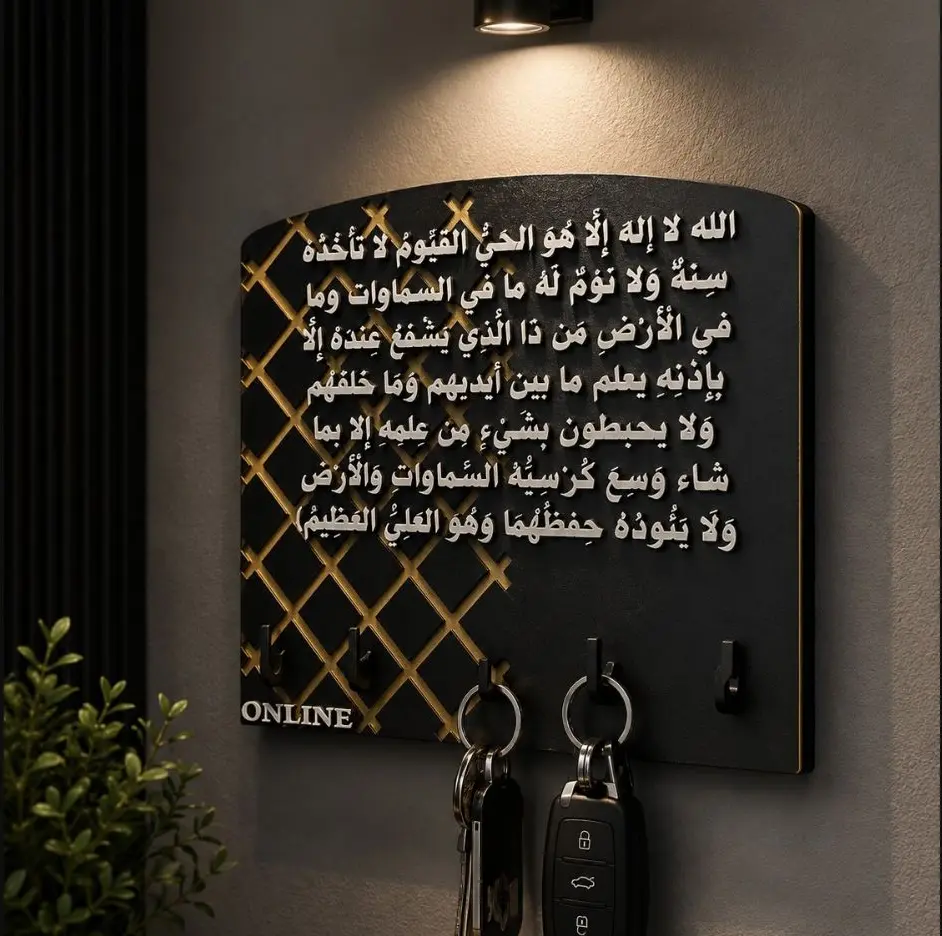 الله لا إله إلّا هُوَ الحَيُّ القَيُّومُ لا تَأخُذُهُ
سِنةٌ وَلا نَوْمٌ لَهُ ما في السماوات وما
في الْأَرْضِ مَن ذَا الَّذِي يَشْفَعُ عِندَهُ إلَّا
بِإذْنِهِ يعلم ما بين أيديهم وَمَا خَلفَهُم
وَلا يحبطون بِشَيْءٍ مِن عِلمِهِ إلا بما
شاء وَسِعَ كُرْسِيُّهُ السَّماواتِ وَالْأَرْض
وَلَا يَئُودُهُ حِفظُهُمَا وَهُوَ العَلِيُّ العَظِيمُ)
ONLINE